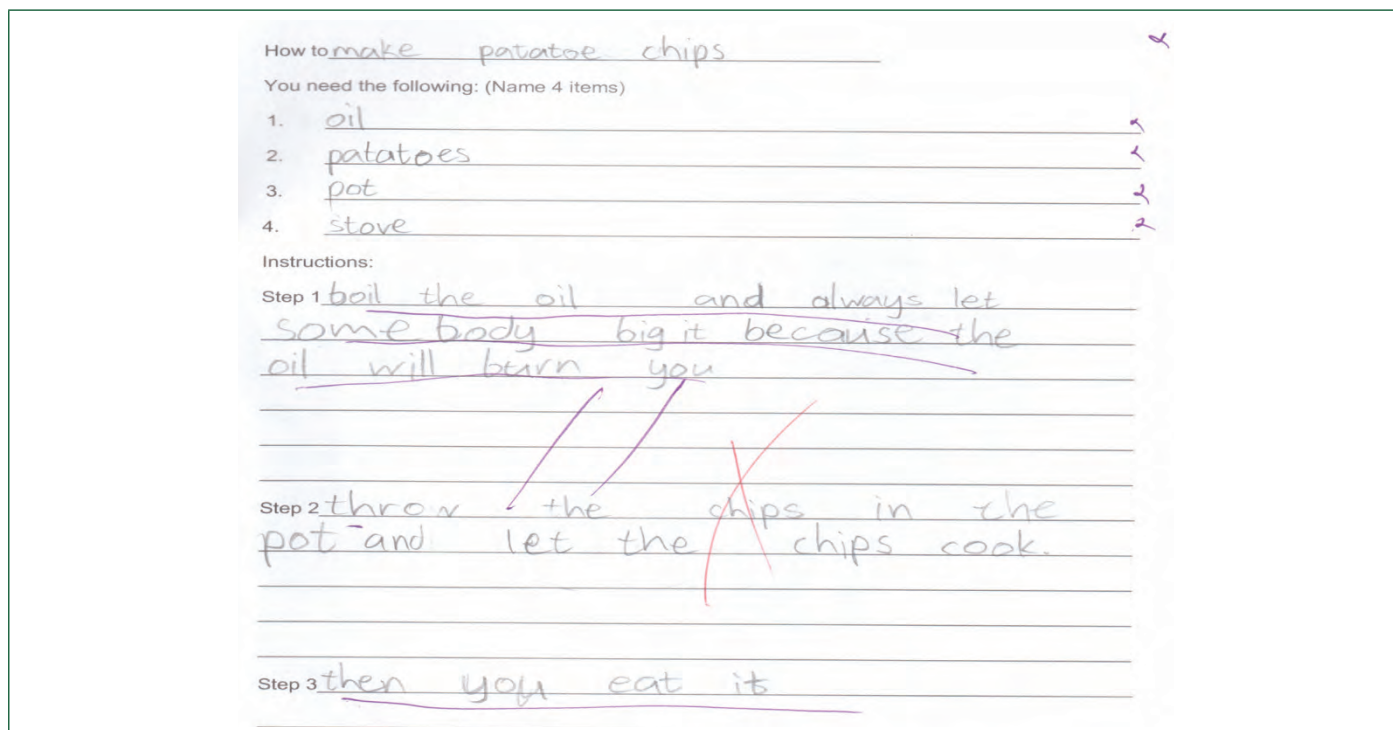 How to make patatoe chips
You need the following: (Name 4 items)
1. oil
2. patatoes
3. pot
4. stove
Instructions:
Step 1 boil the oil and always let
some body big it because the
oil will burn you
Step 2 throw the chips in the
pot and let the chips cook.
Step 3 then you eat it